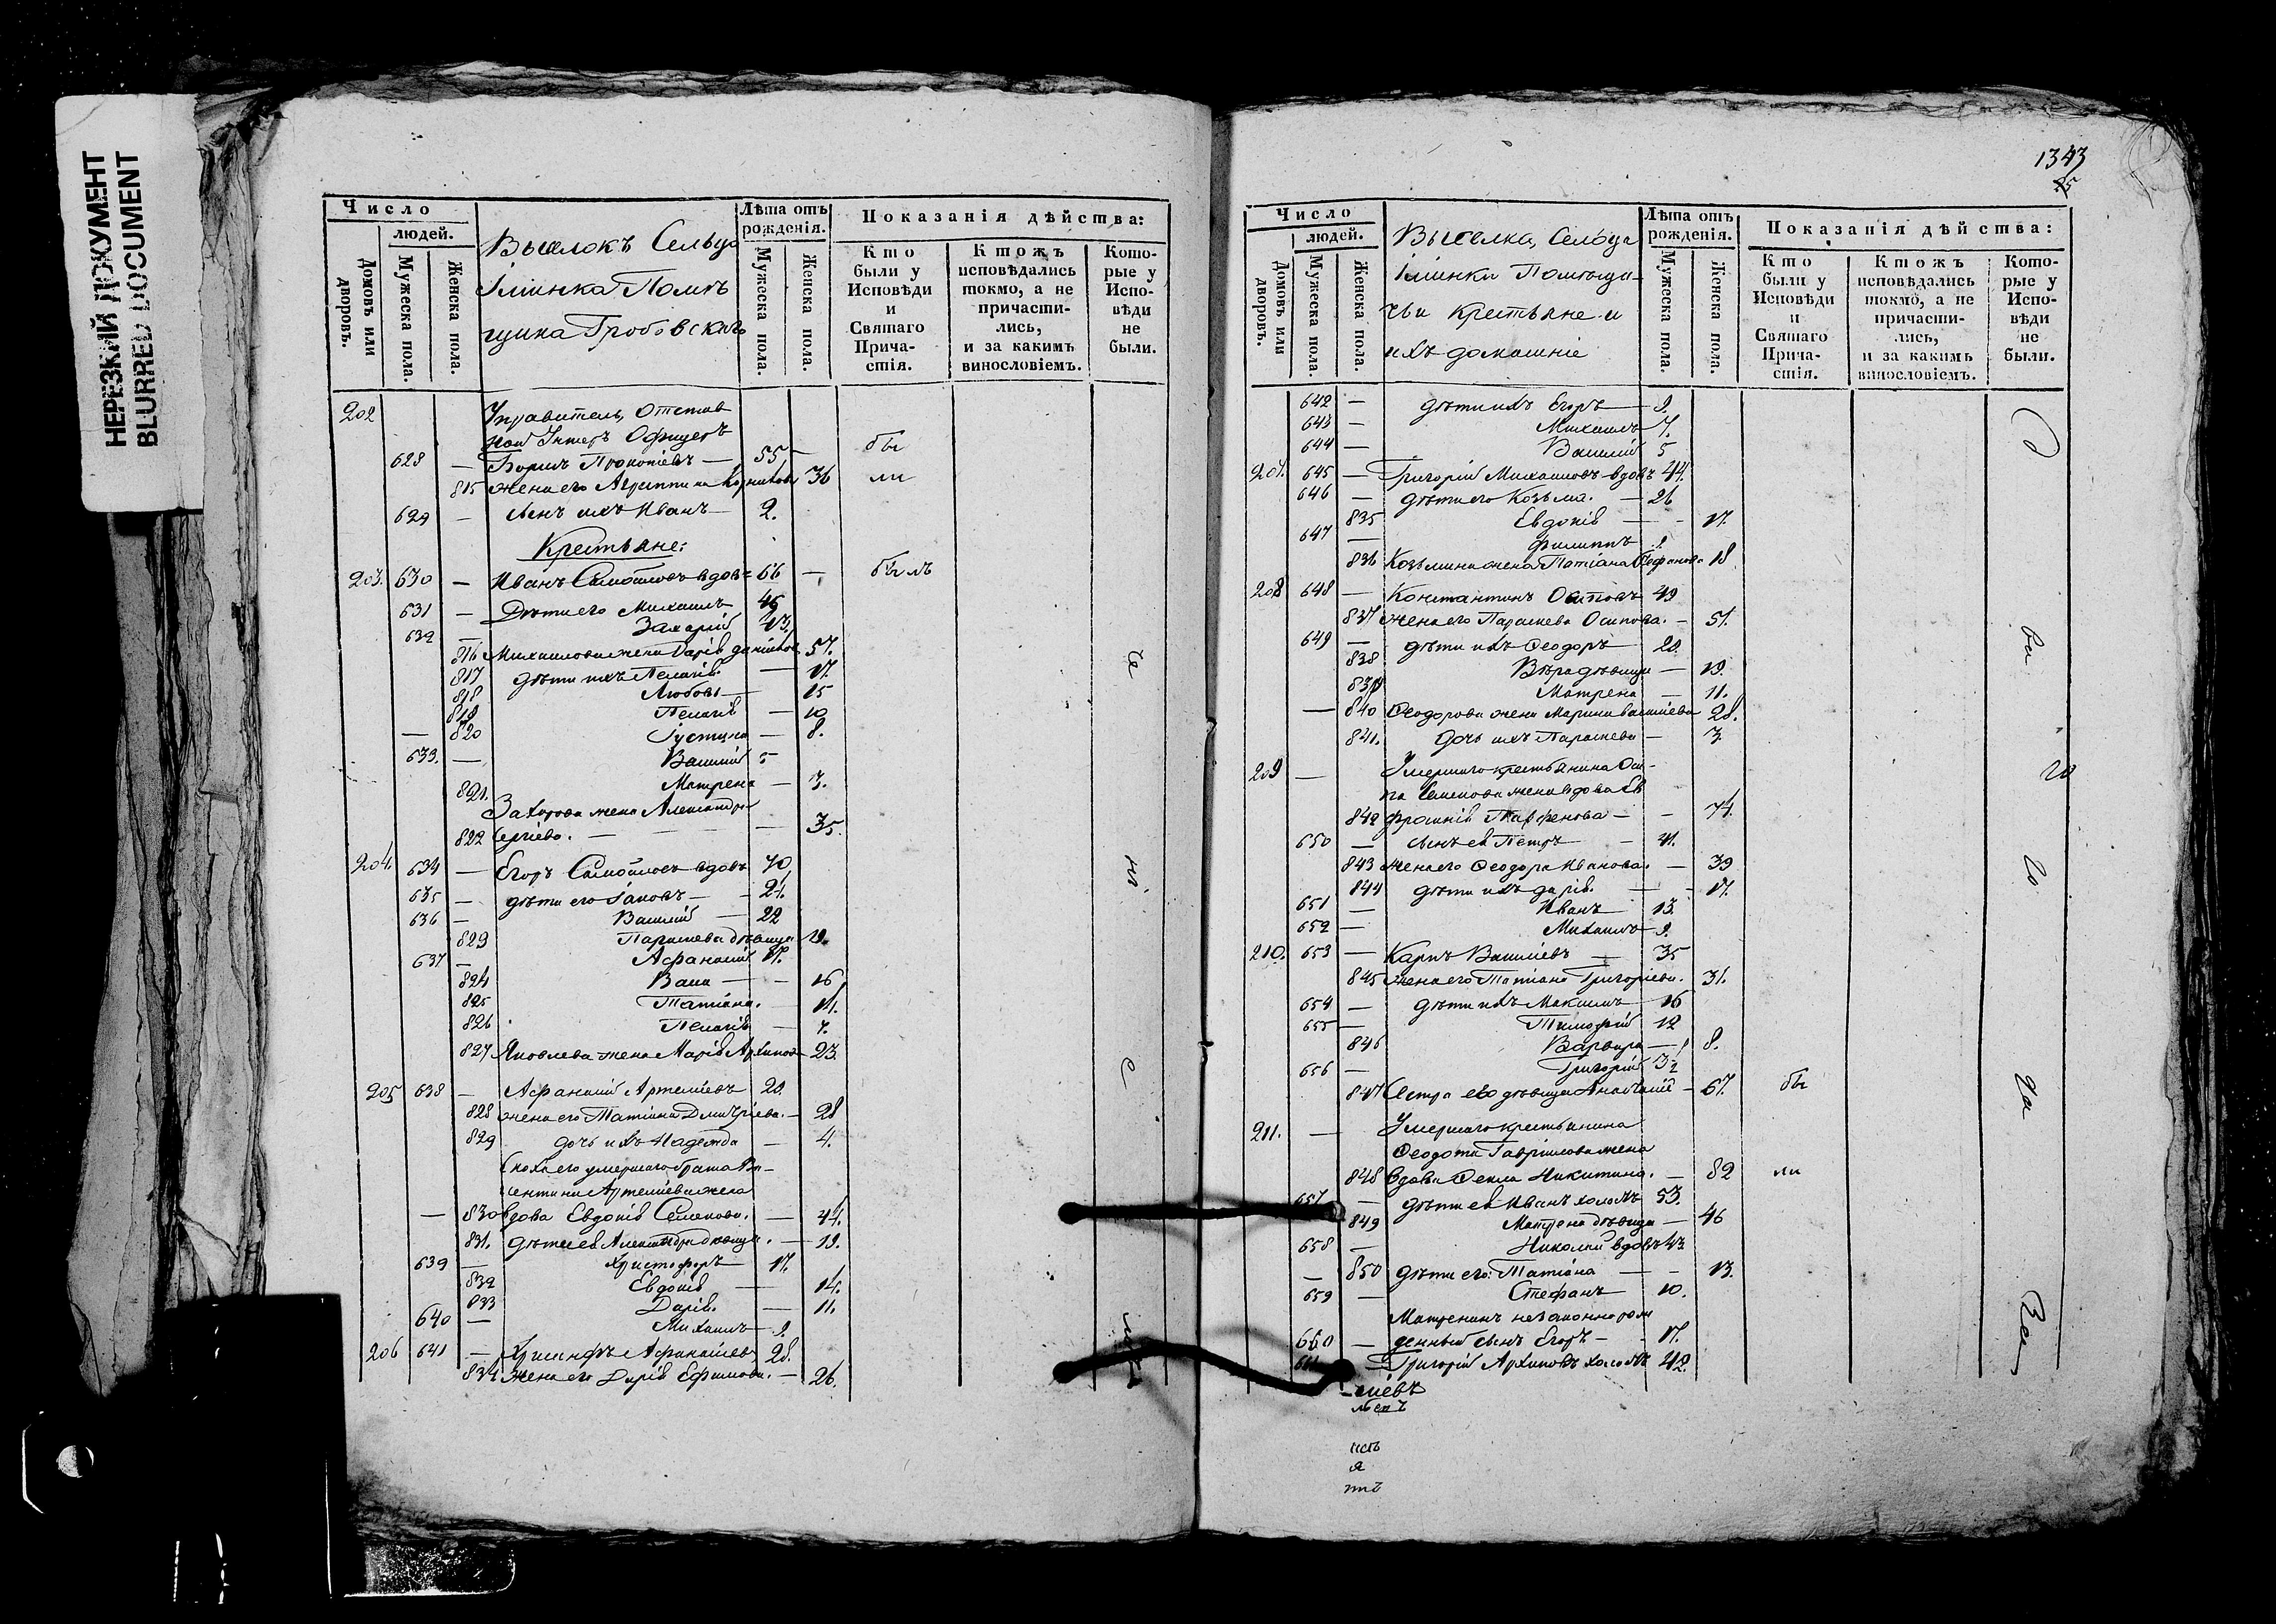 НЕРЕЗКИЙ ДОКУМЕНТ
BLURRED DOCUMENT
Число
людей.
Домовъ или дворовъ.
Мужеска пола.
Женска пола.
Выселокъ Сельца
Помѣ
щика Гробовскаго
Лѣта отъ
рожденія.
Мужеска пола.
Женска пола.
Показанія дѣйства:
Кто
были у
Исповѣди
и
Святаго
Прича-
стія.
Ктожъ
исповѣдались
токмо, а не
причасти-
лись,
и за какимъ
винословіемъ.
Кото-
рые у
Испо-
вѣди
не
были.
202 Управитель, Отстав
ной Унтеръ Офицеръ
628 — Борисъ Прокопіевъ — 55 — бы
815 жена его Агриппина 36 ли
629 — сынъ ихъ Иванъ — 2.
Крестьяне:
203. 630 — Иванъ Самойловъ вдовъ 66 — былъ
631 — Дѣти его Михаилъ 45
632 — Захарій 43.
816 Михаилова жена Дарія 57.
817 дѣти ихъ Пелагія — 17.
818 Любовь — 15
819 Пелагія — 10
— 820 Іустина — 8.
633. — Василій 5
821. Матрена — 3.
Захарова жена Александра
822 Сергіева. — 35.
204. 634 — Егоръ Самойловъ вдовъ 70
635 — дѣти его Іаковъ — 24.
636 — Василій — 22
823 Параскева дѣвица 19.
637 — Афанасій 17.
824 Васса — 16
825 Татіана. — 14.
826 Пелагія — 7.
827 Яковлева жена Марія Архипова 23.
205 638 — Афанасій Артеміевъ 29.
828 жена его Татіана Дмитріева. — 28
829 дочь ихъ Надежда — 4.
Сноха его умершаго брата
Артеміева жена
— 830 вдова Евдокія Семенова. — 44.
831. дѣти ея Александра дѣвица. — 19.
639 — Христофоръ 17.
832 Евдокія — 14.
833 Дарія. — 11.
640 — Михаилъ 9.
206 641 — Афанасіевъ 28.
834. жена его Дарія Ефимова. — 26.
1343
25
Число
людей.
Домовъ или дворовъ.
Мужеска пола.
Женска пола.
Выселка, Сельца
Помѣщи-
чьи крестьяне и
ихъ домашніе
Лѣта отъ
рожденія.
Мужеска пола.
Женска пола.
Показанія дѣйства:
Кто
были у
Исповѣди
и
Святаго
Прича-
стія.
Ктожъ
исповѣдались
токмо, а не
причасти-
лись,
и за какимъ
винословіемъ.
Кото-
рые у
Испо-
вѣди
не
были.
642 — дѣти ихъ Егоръ — 9.
643 — Михаилъ 7.
644 — Василій 5
207. 645 — Григорій Михаиловъ вдовъ 44.
646 — дѣти его Козьма. — 21
835 Евдокія — 17.
647 — Филиппъ 9.
836 Козьмина жена Татіана Стефанова 18
208 648 — Константинъ Осиповъ 49
837 жена его Параскева Осипова. — 51.
649 — дѣти ихъ Феодоръ 28.
838 Вѣра дѣвица — 19.
839 Матрена — 11.
— 840 Феодорова жена Марина Васильева 28.
841. дочь ихъ Параскева — 3.
209 — Умершаго крестьянина Оси-
па Семенова жена вдова Ев
842 фросинія Парфенова — 74.
650 — сынъ ея Петръ — 41.
843 жена его Феодора Иванова. — 39
844 дѣти ихъ Дарія. — 17.
651 — Иванъ — 13.
652 — Михаилъ — 9.
210. 653 — Карпъ Василіевъ — 35
845 жена его Татіана Григоріева. 31.
654 — дѣти ихъ Максимъ — 16
655 — Тимофей 12
846 Варвара — 8.
656 — Григорій 3½
847 Сестра ево дѣвица Анастасія — 67. бы
211. — Умершаго крестьянина
Феодота Гавріилова жена
848 вдова Фекла Никитина. — 82 ли
657 — дѣти ея Иванъ холостъ 53.
849 Матрена дѣвица — 46
658 — Николай вдовъ 43
— 850 дѣти его: Татіана — 13.
659 — Стефанъ — 10.
Матренинъ незаконнорож
660 — денный сынъ Егоръ — 17.
661 — Григорій Архиповъ холостъ 42.